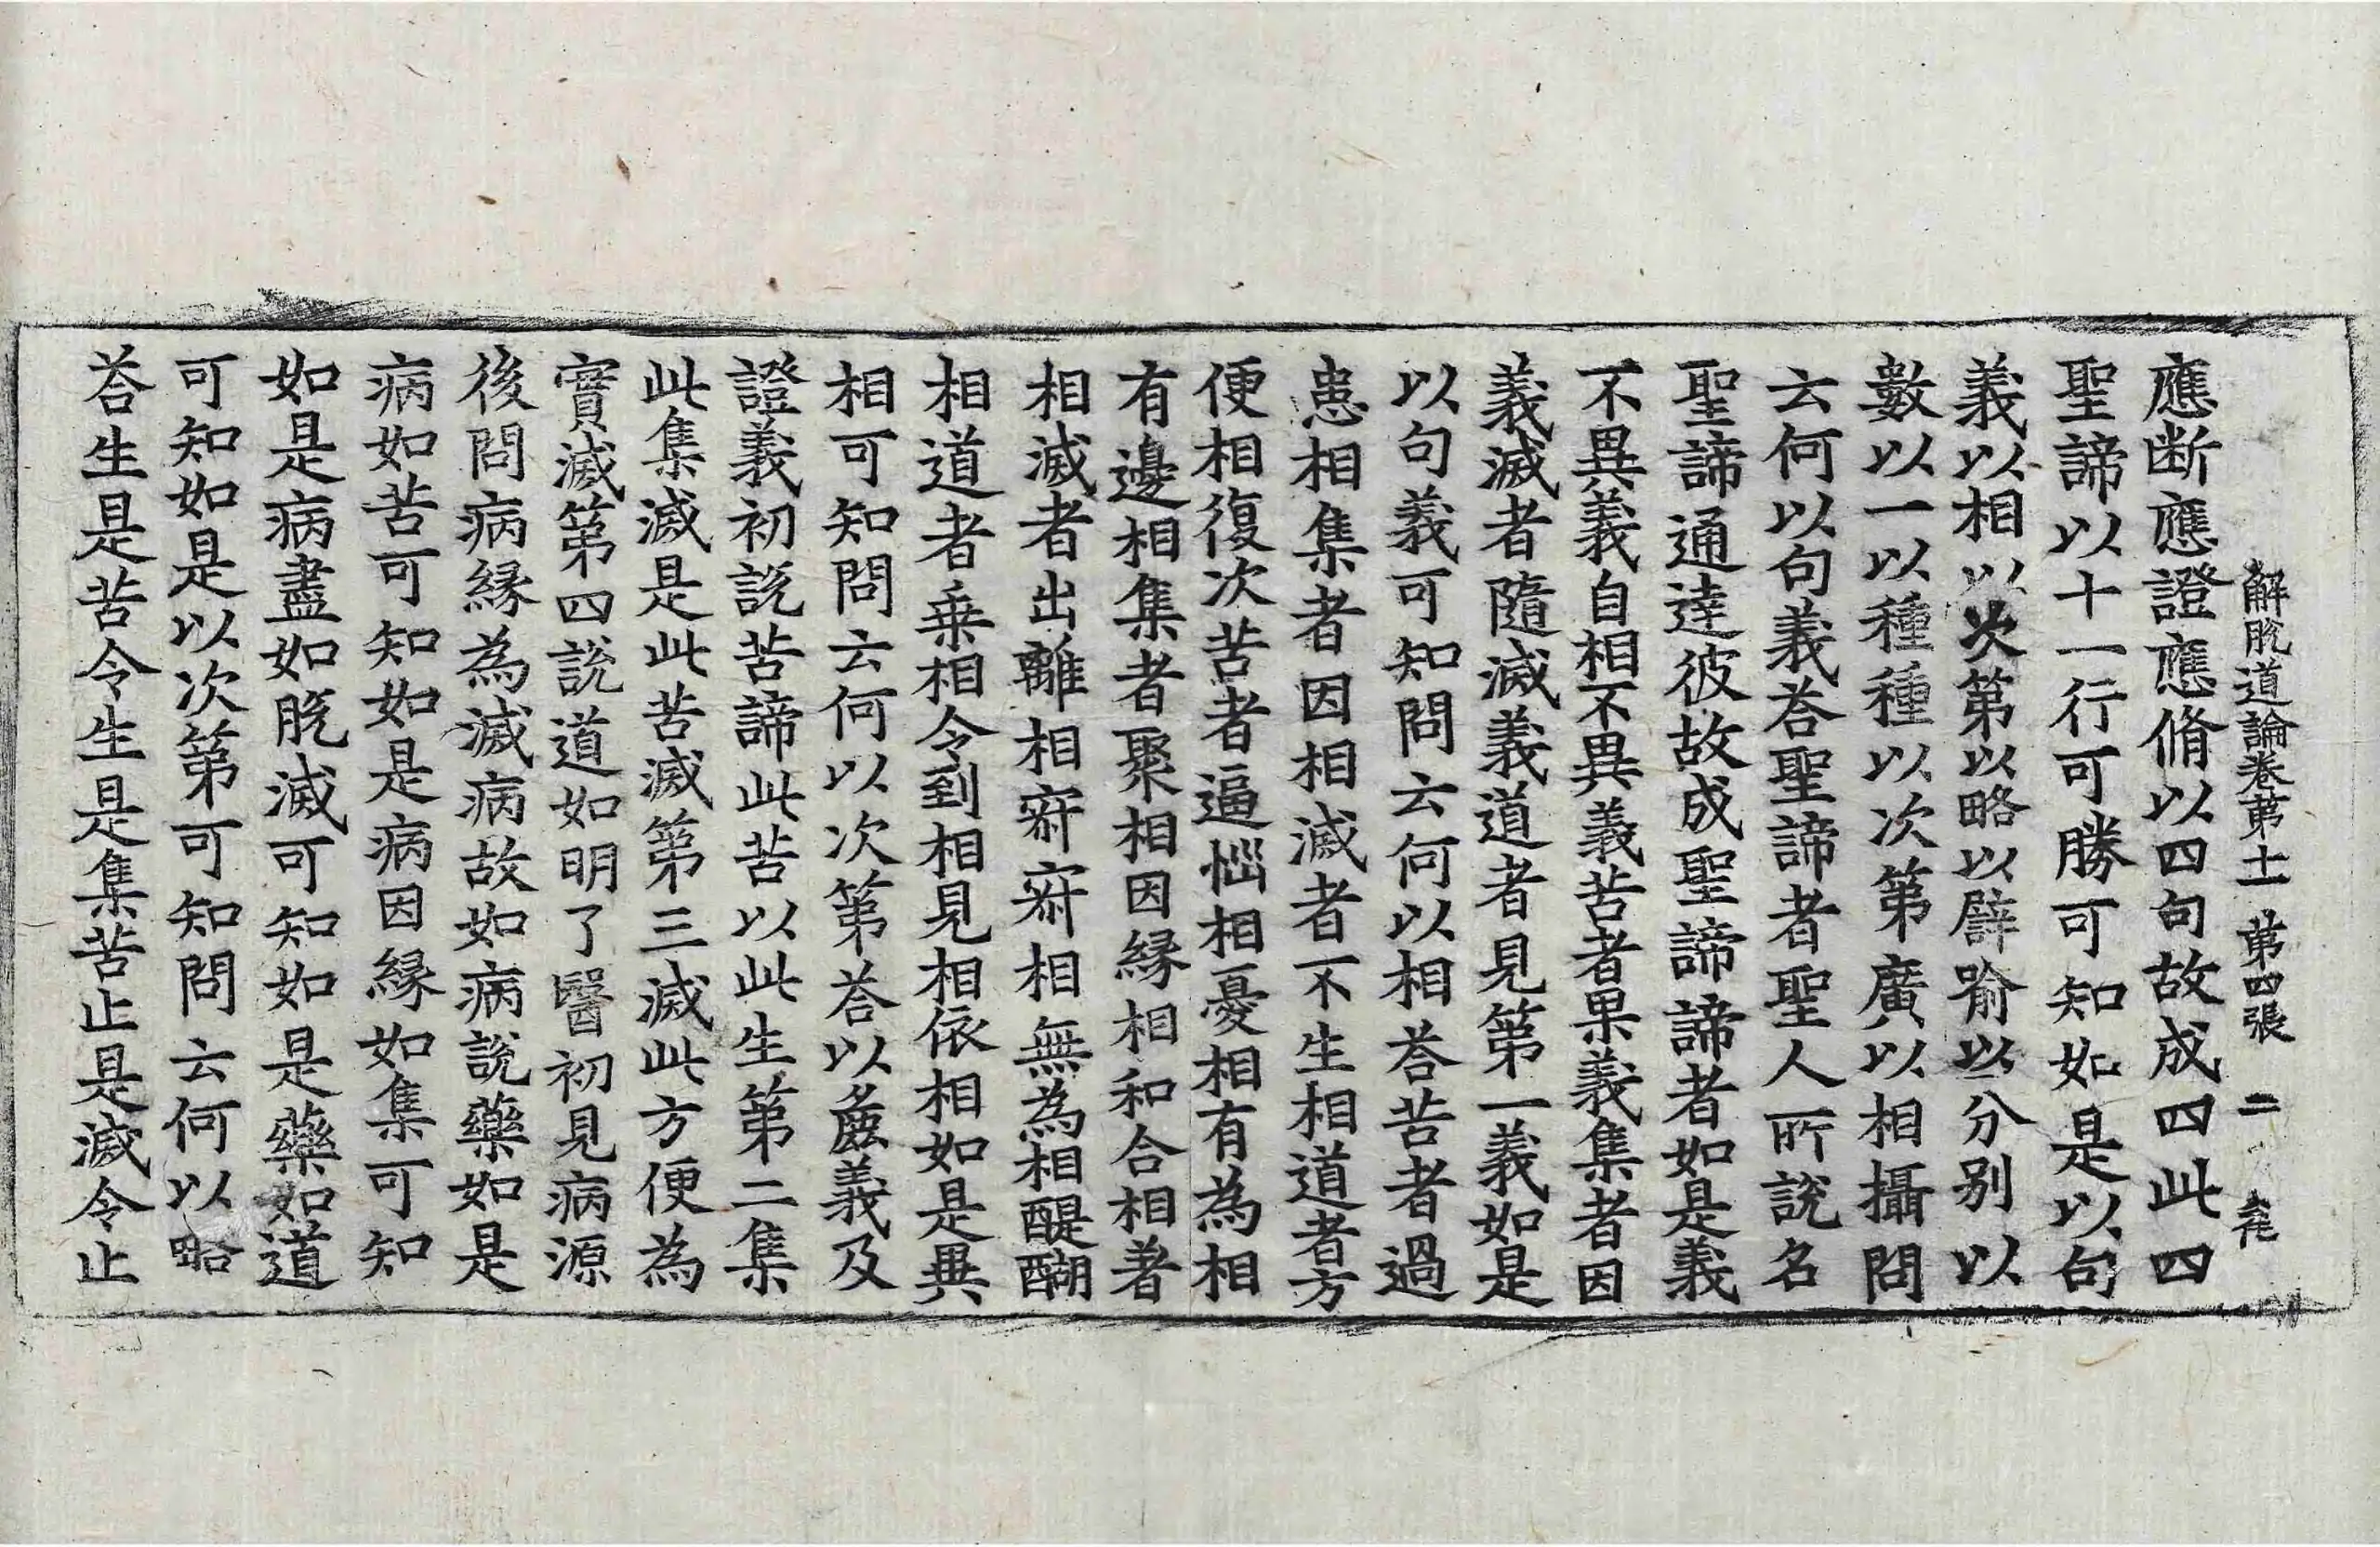 解脫道論卷第十二 第四張 二
應断應證應脩以四句故成四此四
聖諦以十一行可勝可知如是以句
義以相以次第以略以譬喻以分别以
數以一以種種以次第廣以相攝問
云何以句義荅聖諦者聖人所說名
聖諦通達彼故成聖諦諦者如是義
不異義自相不異義苦者果義集者因
義滅者隨滅義道者見第一義如是
以句義可知問云何以相荅苦者過
患相集者因相滅者不生相道者方
便相復次苦者逼惱相憂相有為相
有邊相集者聚相因緣相和合相著
相滅者出離相寂寂相無為相醍醐
相道者乗相令到相見相依相如是異
相可知問云何以次第荅以麁義及
證義初說苦諦此苦以此生第二集
此集滅是此苦滅第三滅此方便為
實滅第四說道如明了醫初見病源
後問病緣為滅病故如病說藥如是
病如苦可知如是病因緣如集可知
如是病盡如脫滅可知如是藥如道
可知如是以次第可知問云何以略
荅生是苦令生是集苦止是滅令止